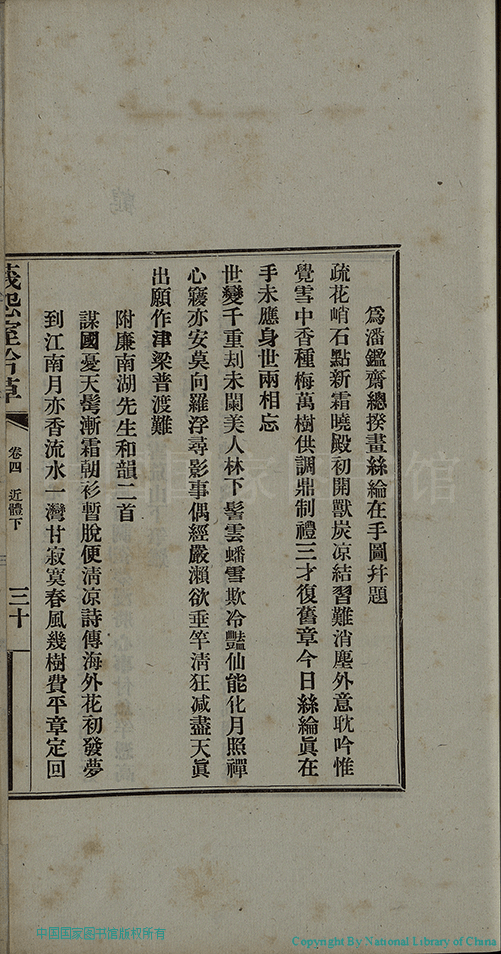 爲潘鑑齋總揆畫絲綸在手圖幷題
疏花峭石點新霜曉殿初開獸炭凉結習難消塵外意耽吟惟
覺雪中香種梅萬樹供調鼎制禮三才復舊章今日絲綸眞在
手未應身世兩相忘
世變千重刦未闌美人林下髻雲蟠雪欺冷豔仙能化月照禪
心寢亦安莫向羅浮尋影事偶經嚴瀨欲垂竿淸狂减盡天眞
出願作津梁普渡難
附廉南湖先生和韻二首
謀國憂天鬢漸霜朝衫暫脫便淸凉詩傳海外花初發夢
到江南月亦香流水一灣甘寂寞春風幾樹費平章定回
卷四 近體下
三十
中国国家图书馆版权所有
Copyright By National Library of China